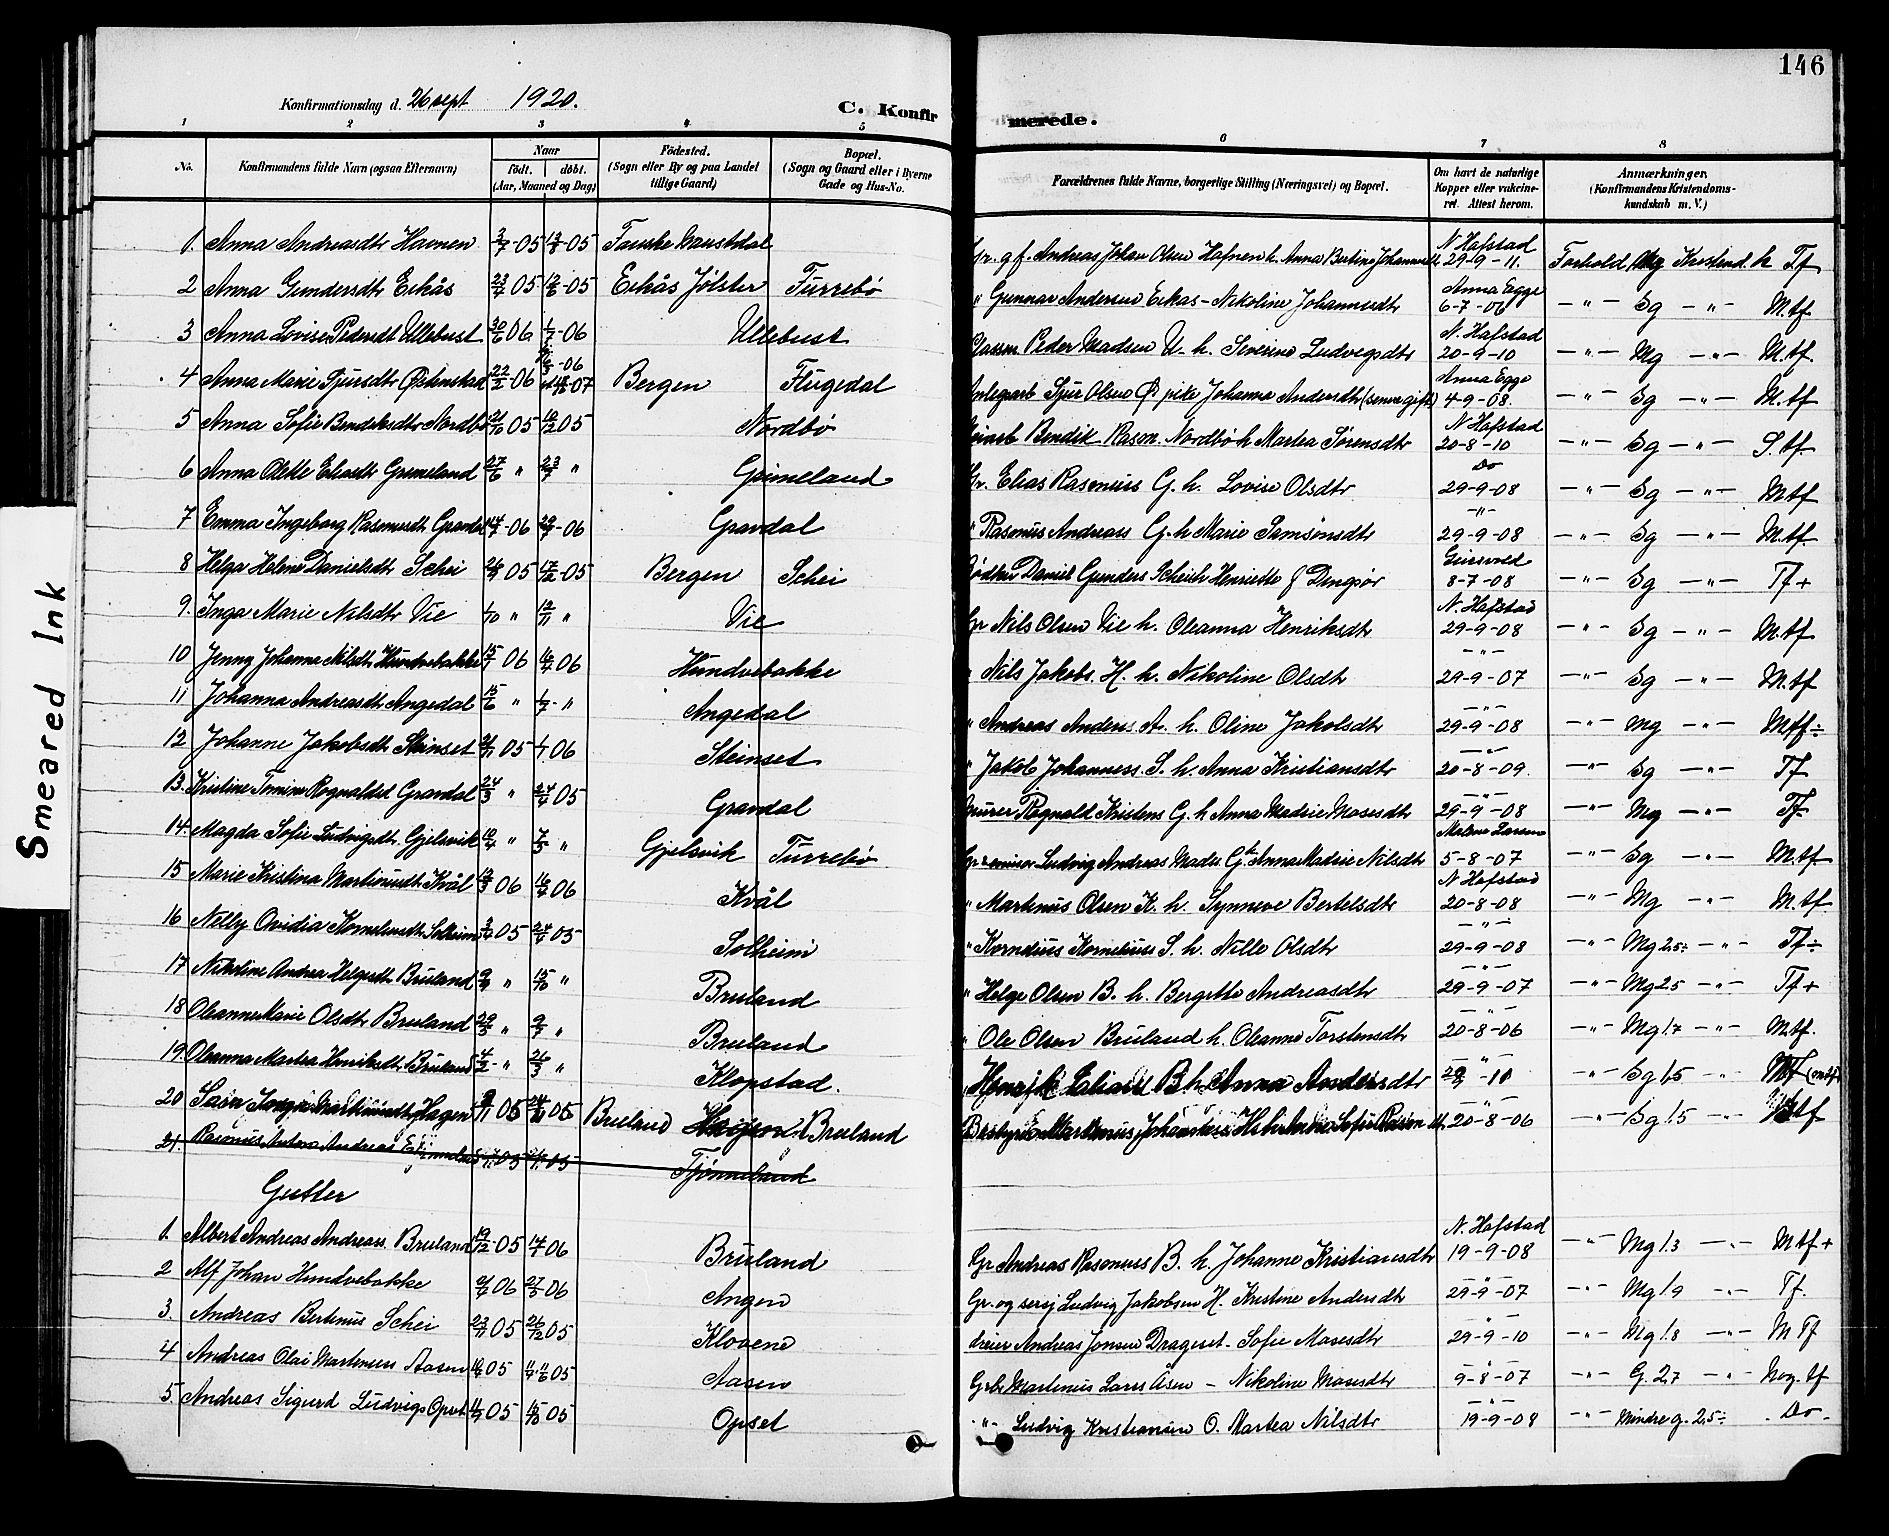 146
Smeared Ink
Konfirmationsdag d. 26 sept 1920.
C. Konfirmerede.
1 2 3 4 5 6 7 8
No.
Konfirmandens fulde Navn (ogsaa Efternavn)
Naar
født. døbt.
(Aar, Maaned og Dag)
Födested.
(Sogn eller By og paa Landet
tillige Gaard)
Bopæl.
(Sogn og Gaard eller i Byerne
Gade og Hus-No.
Forældrenes fulde Navne, borgerlige Stilling (Næringsvei) og Bopæl.
Om havt de naturlige
Kopper eller vakcine-
ret. Attest herom.
Anmærkninger.
(Konfirmandens Kristendoms-
kundskab m. V.)
1. Anna Andreasdtr Havnen 3/7-05 13/8-05 Naustdal Gr. g f. Andreas Johan Olsen Hafnen h. Anna Bertine Johannesdt N Hafstad 29-9-11. Forhold Mg Kristend. h Tf
2 Anna Gundersdtr Eikås 23/4 05 12/6-05 Eikås Jølster Turrebø " Gunnar Andersen Eikas - Nikoline Johannesdtr Anna Egge 6-7-06 -"- Sg -"- M.tf
3 Anna Lovise Pedersdt Ullebust 30/6 06 1/7-06 Ullebust Peder Madsen U- h. Severine Ludvegsdtr N. Hafstad 20-9-10 -"- Mg -"- M.tf.
4 Anna Marie Sjursdtr Østenstad 22/2 06 -06 07 Bergen Flugedal Sjur Olsen Ø pike Johanna Andersdtr (senere gift) Anna Egge 4-9-08. -"- Sg -"- M.tf
5 Anna Sofie Bendiksdtr Nordbø 21/10 05 10/12 05 Nordbø Bendik Rasm. Nordbø h Martea Sørensdtr N Hafstad 20-8-10 -"- Sg -"- S.tf
6 Anna Olette Eliasdt Grimeland 27/6 " 23/7 " Grimeland Gr. Elias Rasmuss G. h. Lovise Olsdtr Do 29-9-08 -"- Sg -"- M.tf
7 Emma Ingeborg Rasmusdt Gravdal 14/7-06 29/7-06 Gravdal " Rasmus Andreass G. h Marie Samsonsdtr -"- 29-9-08 -"- Sg -"- M.tf.
8 Helga Helene Danielsdtr Schei 26/9 05 17/12-05 Bergen Schei Bødker Daniel Gunders Schei h Henriette 8-7-08 -"- Sg -"- Tf+
9. Inga Marie Nilsdtr Vie 1/10 " 12/11 " Vie Gr Nils Olsen Vie h. Oleanna Henriksdtr N. Hafstad 29-9-08 -"- Sg -"- M.tf
10 Jenny Johanna Nilsdt Hundvebakke 15/3 06 16/4 06 Hundvebakke " Nils Jakobs. H. h. Nikoline Olsdtr -"- 29-9-07 -"- Sg -"- M.tf
11 Johanna Andreasdt Angedal 15/6 " 1/7-" Angedal " Andreas Anderss A. h. Oline Jakobsdtr -"- 29-9-08 -"- Mg -"- Mtf÷
12 Johanne Jakobsdt Steinset 21/11 05 1/1 06 Steinset " Jakob Johanness. S. h. Anna Kristiansdtr -"- 20-8-09. -"- Sg -"- Tf
13. Kristine Tomine Rognaldsd Gravdal 24/3 " 24/4 05 Gravdal Murer Ragnald Kristens G. h Anna Madrie Mosesdtr -"- 29-9-08 -"- Mg -"- Tf
14. Magda Sofie Ludvigsdt. Gjelsvik 10/4 " 7/5 " Gjelsvik Turrebø Ludvig Andreas Mads. G Anna Madrie Nilsdtr Malene Larsen 5-8-07 -"- Sg -"- M.tf
15 Marie Kristina Martinusdt Kvål 12/3 06 16/4 06 Kvål " Martinus Olsen K. h. Synneve Bertelsdtr N Hafstad 20-8-08 -"- Mg -"- M.tf.
16 Nilly Ovidia Korneliusdt Solheim 3/4 05 24/4 05 Solheim " Kornelius Korneliuss S. h. Nille Olsdtr -"- 29-9-08 -"- Mg 2.5÷ -"- Tf÷
17 Nikoline Andrea Helgesdt Bruland 9/9 " 15/10 " Bruland " Helge Olsen B. h. Bergitte Andreasdtr -"- 29-9-07 -"- Mg 2.5 -"- Tf+
18 Oleanne Marie Olsdtr Bruland 29/3 " 9/4 " Bruland " Ole Olsen Bruland h. Oleanne Torstensdtr -"- 20-8-06 -"- Mg 1.7 -"- M.tf.
19. Oleanna Martea Henriksdt Bruland 4/2-" 26/3 " Klopstad. " Henrik Eliass B. h. Anna Andersdtr -"- 10 -"- Sg 1,5 -"-
20 Martinusdt Hagen 05 05 Bruland Hagen Bruland Martinus h. Sofie Rasm. dt. 20-8-06 -"- Sg 1.5 -"- tf
21. Rasmus Anton Andreas 05 05 Tjønneland
Gutter
1. Albert Andreas Andreass. Bruland 19/12-05 14/1 06 Bruland Gr Andreas Rasmuss B. h. Johanne Kristiansdtr N. Hafstad 19-9-08 -"- Mg 1.3 -"- M.tf+
2 Alf Johan Hundvebakke 2/4 06 27/5 06 Angen Gr. og sersj Ludvig Jakobsen H. Kristine Andersdtr -"- 29-9-07 -"- Mg 1.9 -"- Tf.
3. Andreas Bertinus Schei 23/11 05 26/12 05 Klovene dreier Andreas Jonsen Drageset - Sofie Mosesdtr -"- 29-9-10 -"- Mg 1.8 -"- M Tf
4 Andreas Olai Martinuss Aasen 05 11/6 05 Aasen Martinus Larss Åsen - Nikoline Mosesdtr -"- 9-8-07 -"- G. 2,7 -"- Nog. tf
5 Andreas Sigurd Ludvigs Opset 05 15/10 05 Opset -"- Ludvig Kristiansen O. Martea Nilsdtr -"- 19-9-08 -"- Mindre g. 2,5÷ . Do -